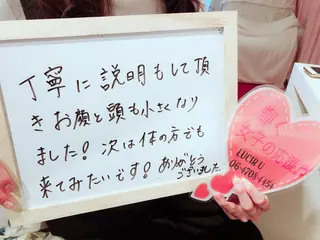 丁寧に説明もして頂
きお顔と頭も小さくなり
ました!次は体の方でも
来てみたいです!ありがとう
ございました
女子の応援
LUCIRU
06-4708-4454